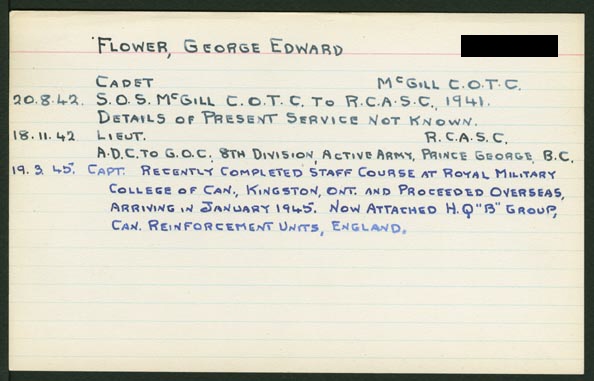 FLOWER, GEORGE EDWARD
CADET McGILL C.O.T.C.
20.8.42. S.O.S. McGILL C.O.T.C. TO R.C.A.S.C., 1941.
DETAILS OF PRESENT SERVICE NOT KNOWN.
18.11.42 LIEUT. R.C.A.S.C.
A.D.C. TO G.O.C. 8TH DIVISION, ACTIVE ARMY, PRINCE GEORGE, B.C.
19.3.45. CAPT. RECENTLY COMPLETED STAFF COURSE AT ROYAL MILITARY
COLLEGE OF CAN., KINGSTON, ONT. AND PROCEEDED OVERSEAS,
ARRIVING IN JANUARY 1945. NOW ATTACHED H.Q "B" GROUP,
CAN. REINFORCEMENT UNITS, ENGLAND.